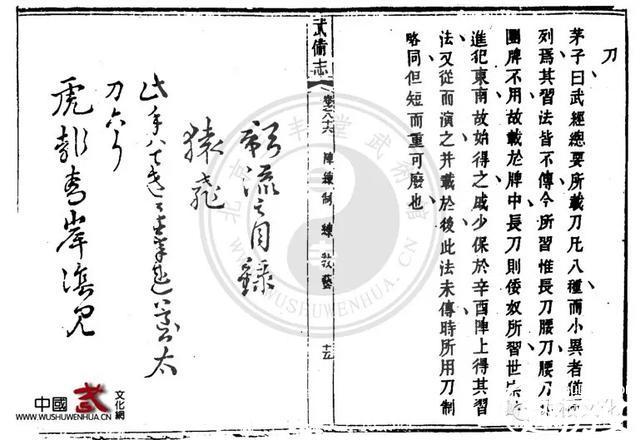 刀
茅子曰武經總要所載刀凡八種而小異者猶
列焉其習法皆不傳今所習惟長刀腰刀腰刀
團牌不用故載於牌中長刀則倭奴所習世宗
進犯東南故始得之戚少保於辛酉陣上得其習
法又從而演之并載於後此法未傳時所用刀制
略同但短而重可廢也
武備志 卷八十六 陣練制 練 教藝 十五
影流之目錄
猿飛
此手ハ
太刀
虎飛青岸陰見
中國武文化網
WWW.WUSHUWENHUA.CN
武術館
WWW.WUSHUWENHUA.CN